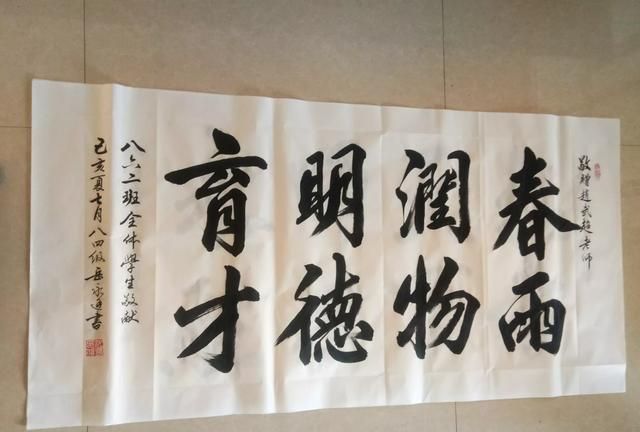 敬贈趙武超老师
春雨
潤物
明德
育才
八六二班全体學生敬献
己亥夏七月八四级岳永逵書